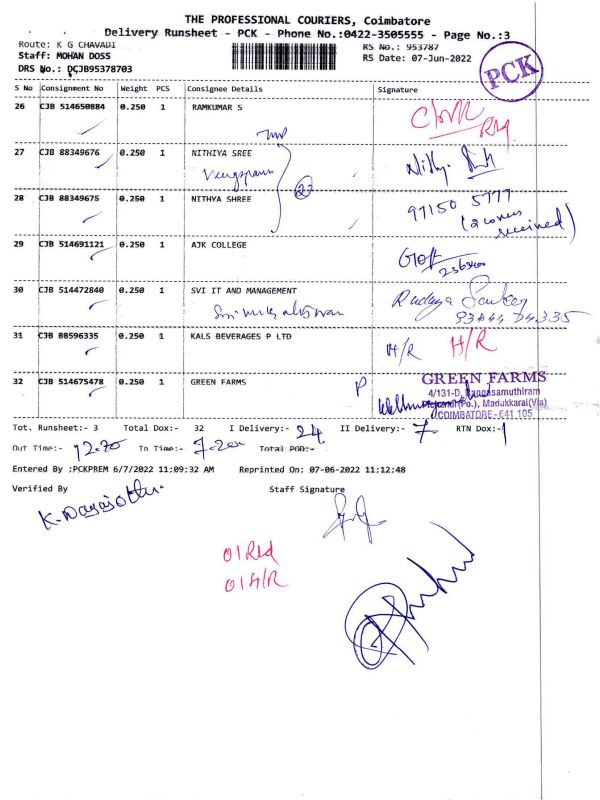 THE PROFESSIONAL COURIERS, Coimbatore
Delivery Runsheet - PCK - Phone No.:0422-3505555 - Page No.:3
Route: K G CHAVADI
RS No.: 953787
Staff: MOHAN DOSS
RS Date: 07-Jun-2022
DRS No.: DCJB95378703
PCK
S No Consignment No Weight PCS Consignee Details Signature
26 CJB 514650884 0.250 1 RAMKUMAR S
27 CJB 88349676 0.250 1 NITHIYA SREE
2
28 CJB 88349675 0.250 1 NITHYA SHREE 97150 5777
(2 covers received)
29 CJB 514691121 0.250 1 AJK COLLEGE
30 CJB 514472840 0.250 1 SVI IT AND MANAGEMENT
31 CJB 88596335 0.250 1 KALS BEVERAGES P LTD H/R H/R
32 CJB 514675478 0.250 1 GREEN FARMS P
GREEN FARMS
4/131-D, Rangasamuthiram
(Po.), Madukkarai(Via)
COIMBATORE-641 105
Tot. Runsheet:- 3 Total Dox:- 32 I Delivery:- 24 II Delivery:- 7 RTN Dox:- 1
Out Time:- In Time:- 7.20 Total POD:-
Entered By ;PCKPREM 6/7/2022 11:09:32 AM Reprinted On: 07-06-2022 11:12:48
Verified By Staff Signature
01 Rtd
01 H/R